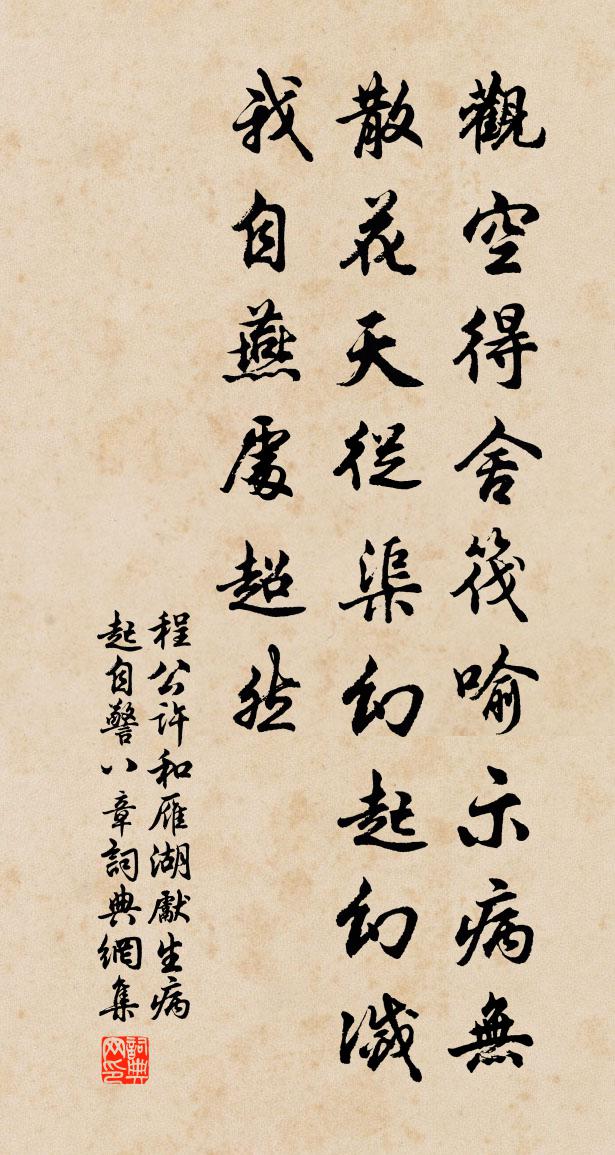 觀空得舍筏喻示病無
散花天從渠幻起幻滅
我自燕處超然
程公許和雁湖獻生病
起自警八章詞典網集
詞典网印